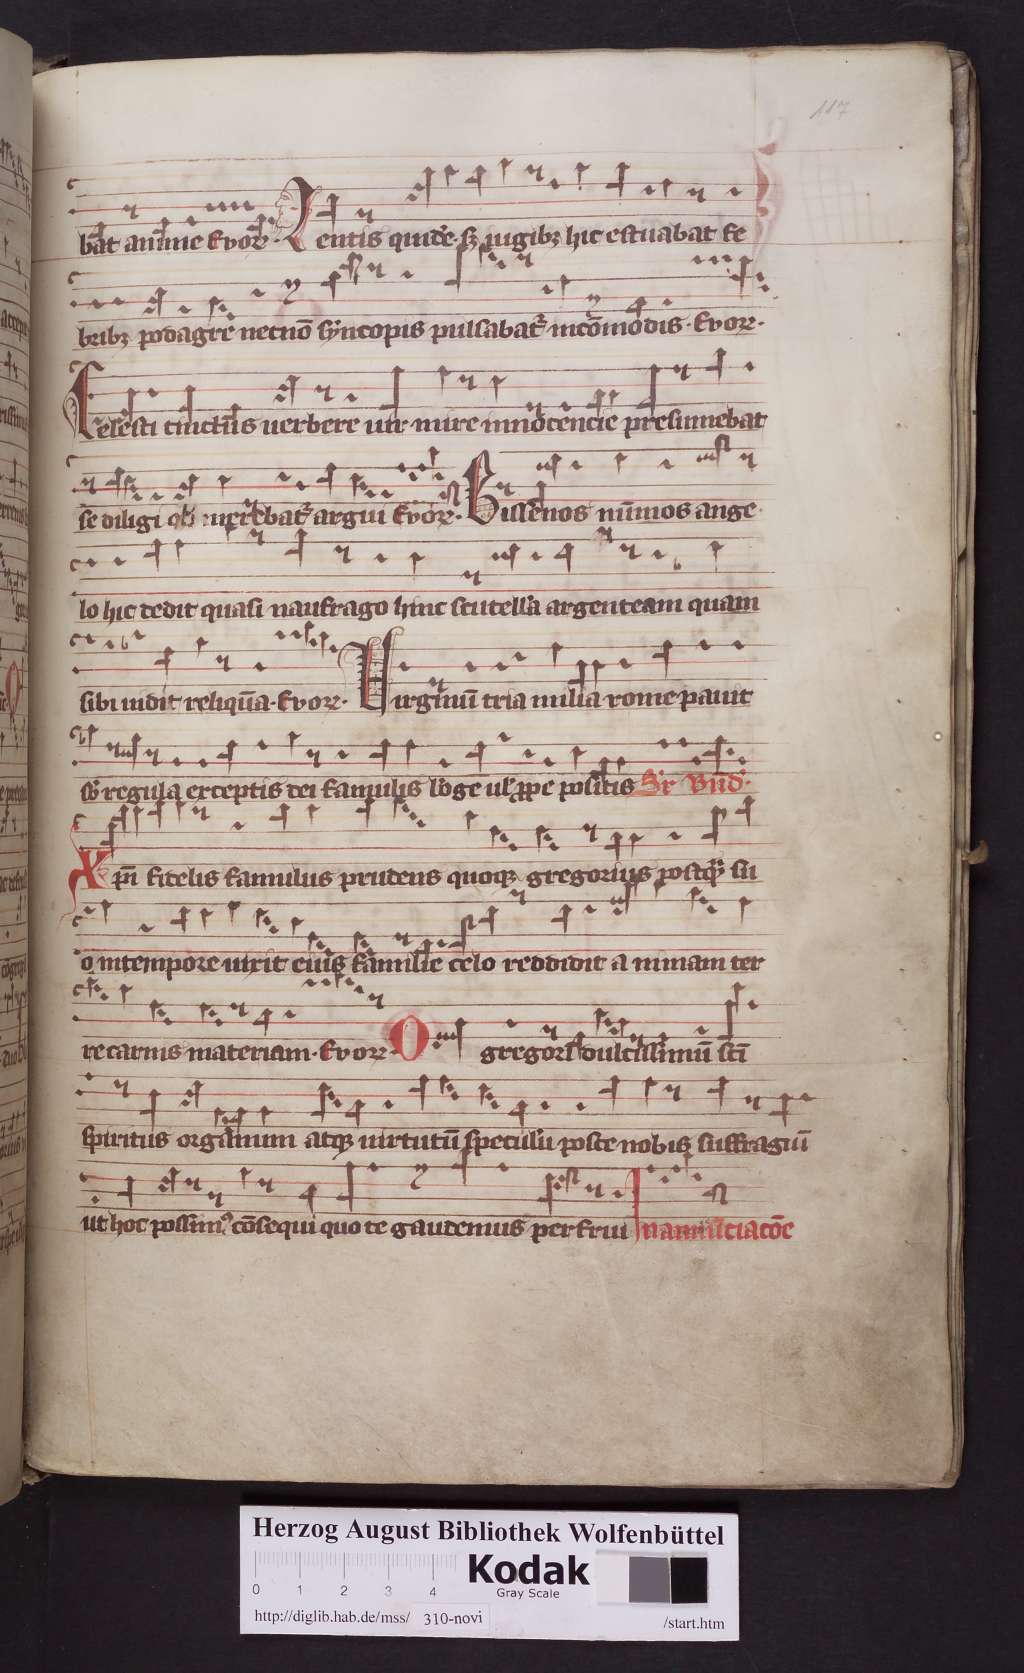 117
bat anime Evorꝝ. Lentis quidē. sꝫ iugibꝫ hic estuabat fe
bribꝫ podagre necnō syncopis pulsabatʳ incōmodis. Evorꝝ.
Celesti cinctus verbere vir mire innocencie presumebat
se diligi argui Evorꝝ. Bissenos nūmos ange
lo hic dedit quasi naufrago hinc scutella argenteam quam
sibi indit reliqūa. Evorꝝ. Virginū tria milia rome pavit
sb regula exceptis dei famulis lōge positis
Xpī fidelis famulus prudens quoqꝫ gregorius postqͣ su
o intempore vixit eius familie celo reddidit a nimam ter
re carnis materiam. Evorꝝ. O gregori dulcissimū scī
spiritus organum atqꝫ virtutū speculū posce nobis suffragiū
ut hoc possimꝰ cōsequi quo te gaudemus perfrui In annūciacōe
Herzog August Bibliothek Wolfenbüttel
0 1 2 3 4
Kodak
Gray Scale
http://diglib.hab.de/mss/ 310-novi /start.htm